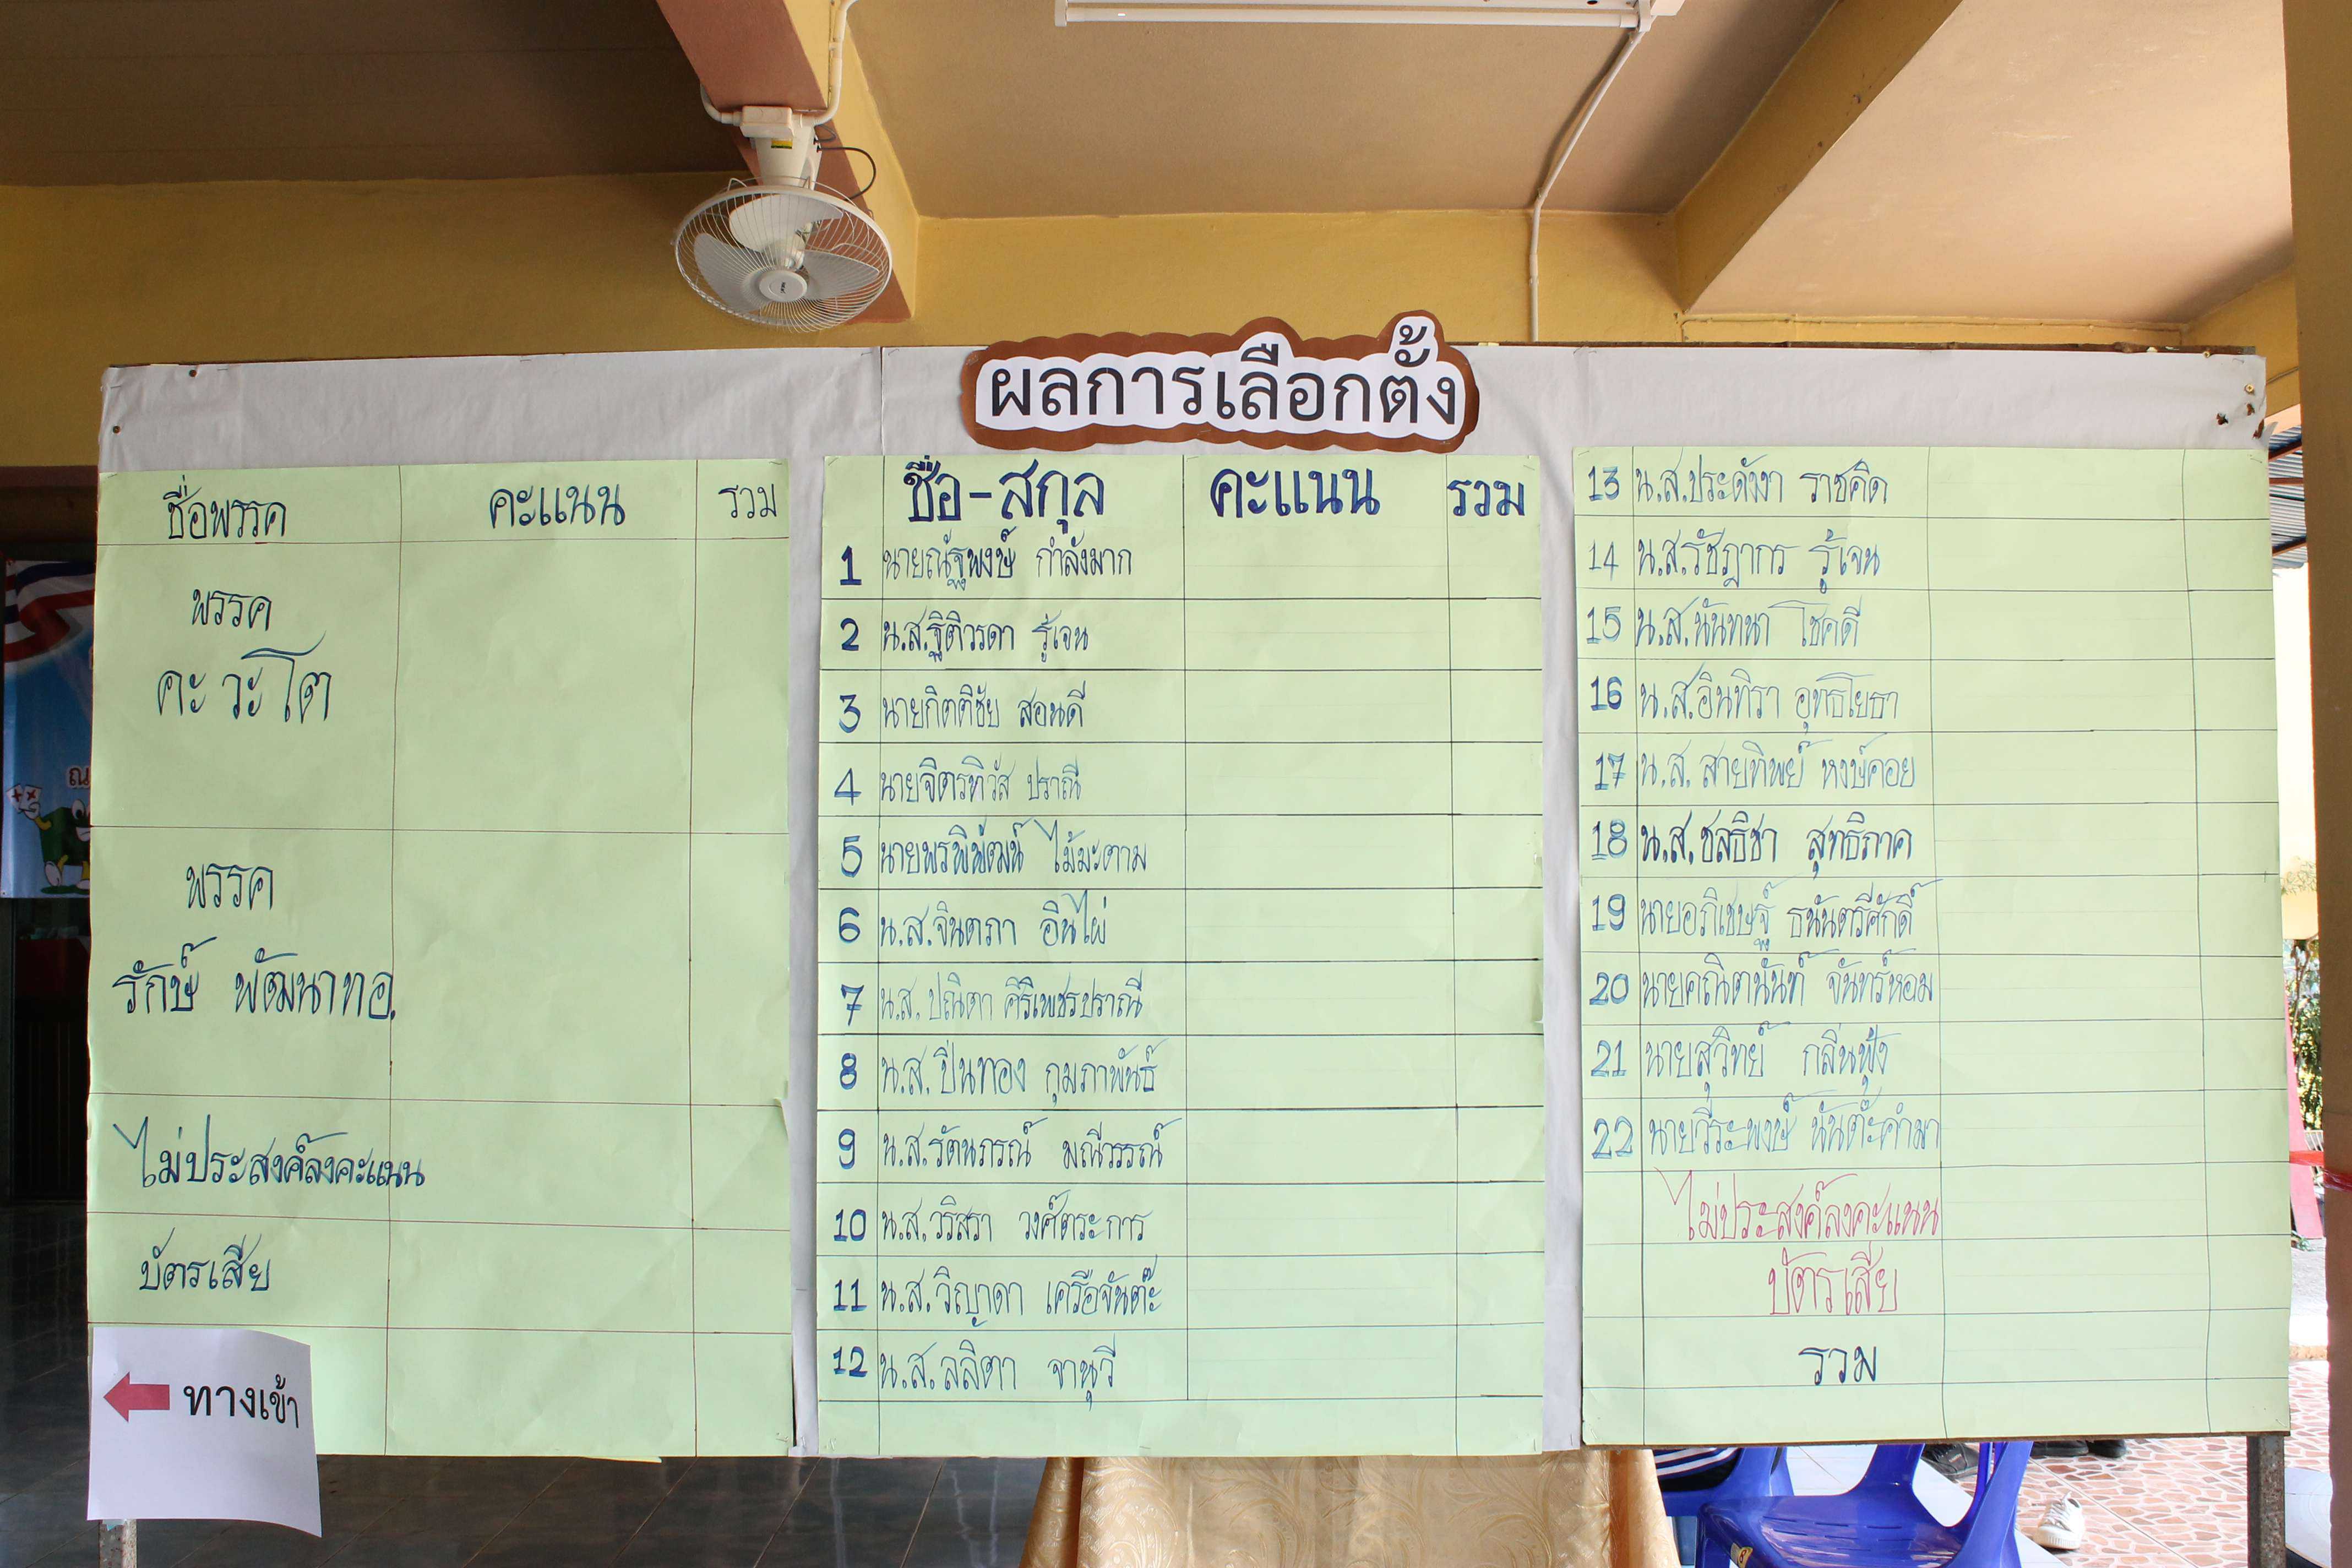 ผลการเลือกตั้ง
ชื่อพรรค คะแนน รวม
พรรค
คะ วะ โต
พรรค
รักษ์ พัฒนาทอ.
ไม่ประสงค์ลงคะแนน
บัตรเสีย
ทางเข้า
ชื่อ-สกุล คะแนน รวม
1 นายณัฐพงษ์ กำลังมาก
2 น.ส.ฐิติวรดา รู้เจน
3 นายกิตติชัย สอนดี
4 นายจิตรทิวัส ปราณี
5 นายพรพิพัฒน์ ไม้มะตาม
6 น.ส.จินตภา อินไผ่
7 น.ส.ปณิตา คีรีเพชรปราณี
8 น.ส.ปิ่นทอง กุมภาพันธ์
9 น.ส.รัตนภรณ์ มณีวรรณ์
10 น.ส.วริสรา วงศ์ตระการ
11 น.ส.วิญาดา เครือจันต๊ะ
12 น.ส.ลลิตา จานุวี
13 น.ส.ประดังงา ราชคิด
14 น.ส.รัชฎากร รู้เจน
15 น.ส.นันทนา โชคดี
16 น.ส.อินทิรา อุทธโยธา
17 น.ส.สายทิพย์ หงษ์คอย
18 น.ส.ชลธิชา สุทธิภาค
19 นายอภิเชษฐ์ ธนันตรีศักดิ์
20 นายคณิตนันท์ จันทร์หอม
21 นายสุวิทย์ กลิ่นฟุ้ง
22 นายวีระพงษ์ นันต๊ะคำมา
ไม่ประสงค์ลงคะแนน
บัตรเสีย
รวม
ณ